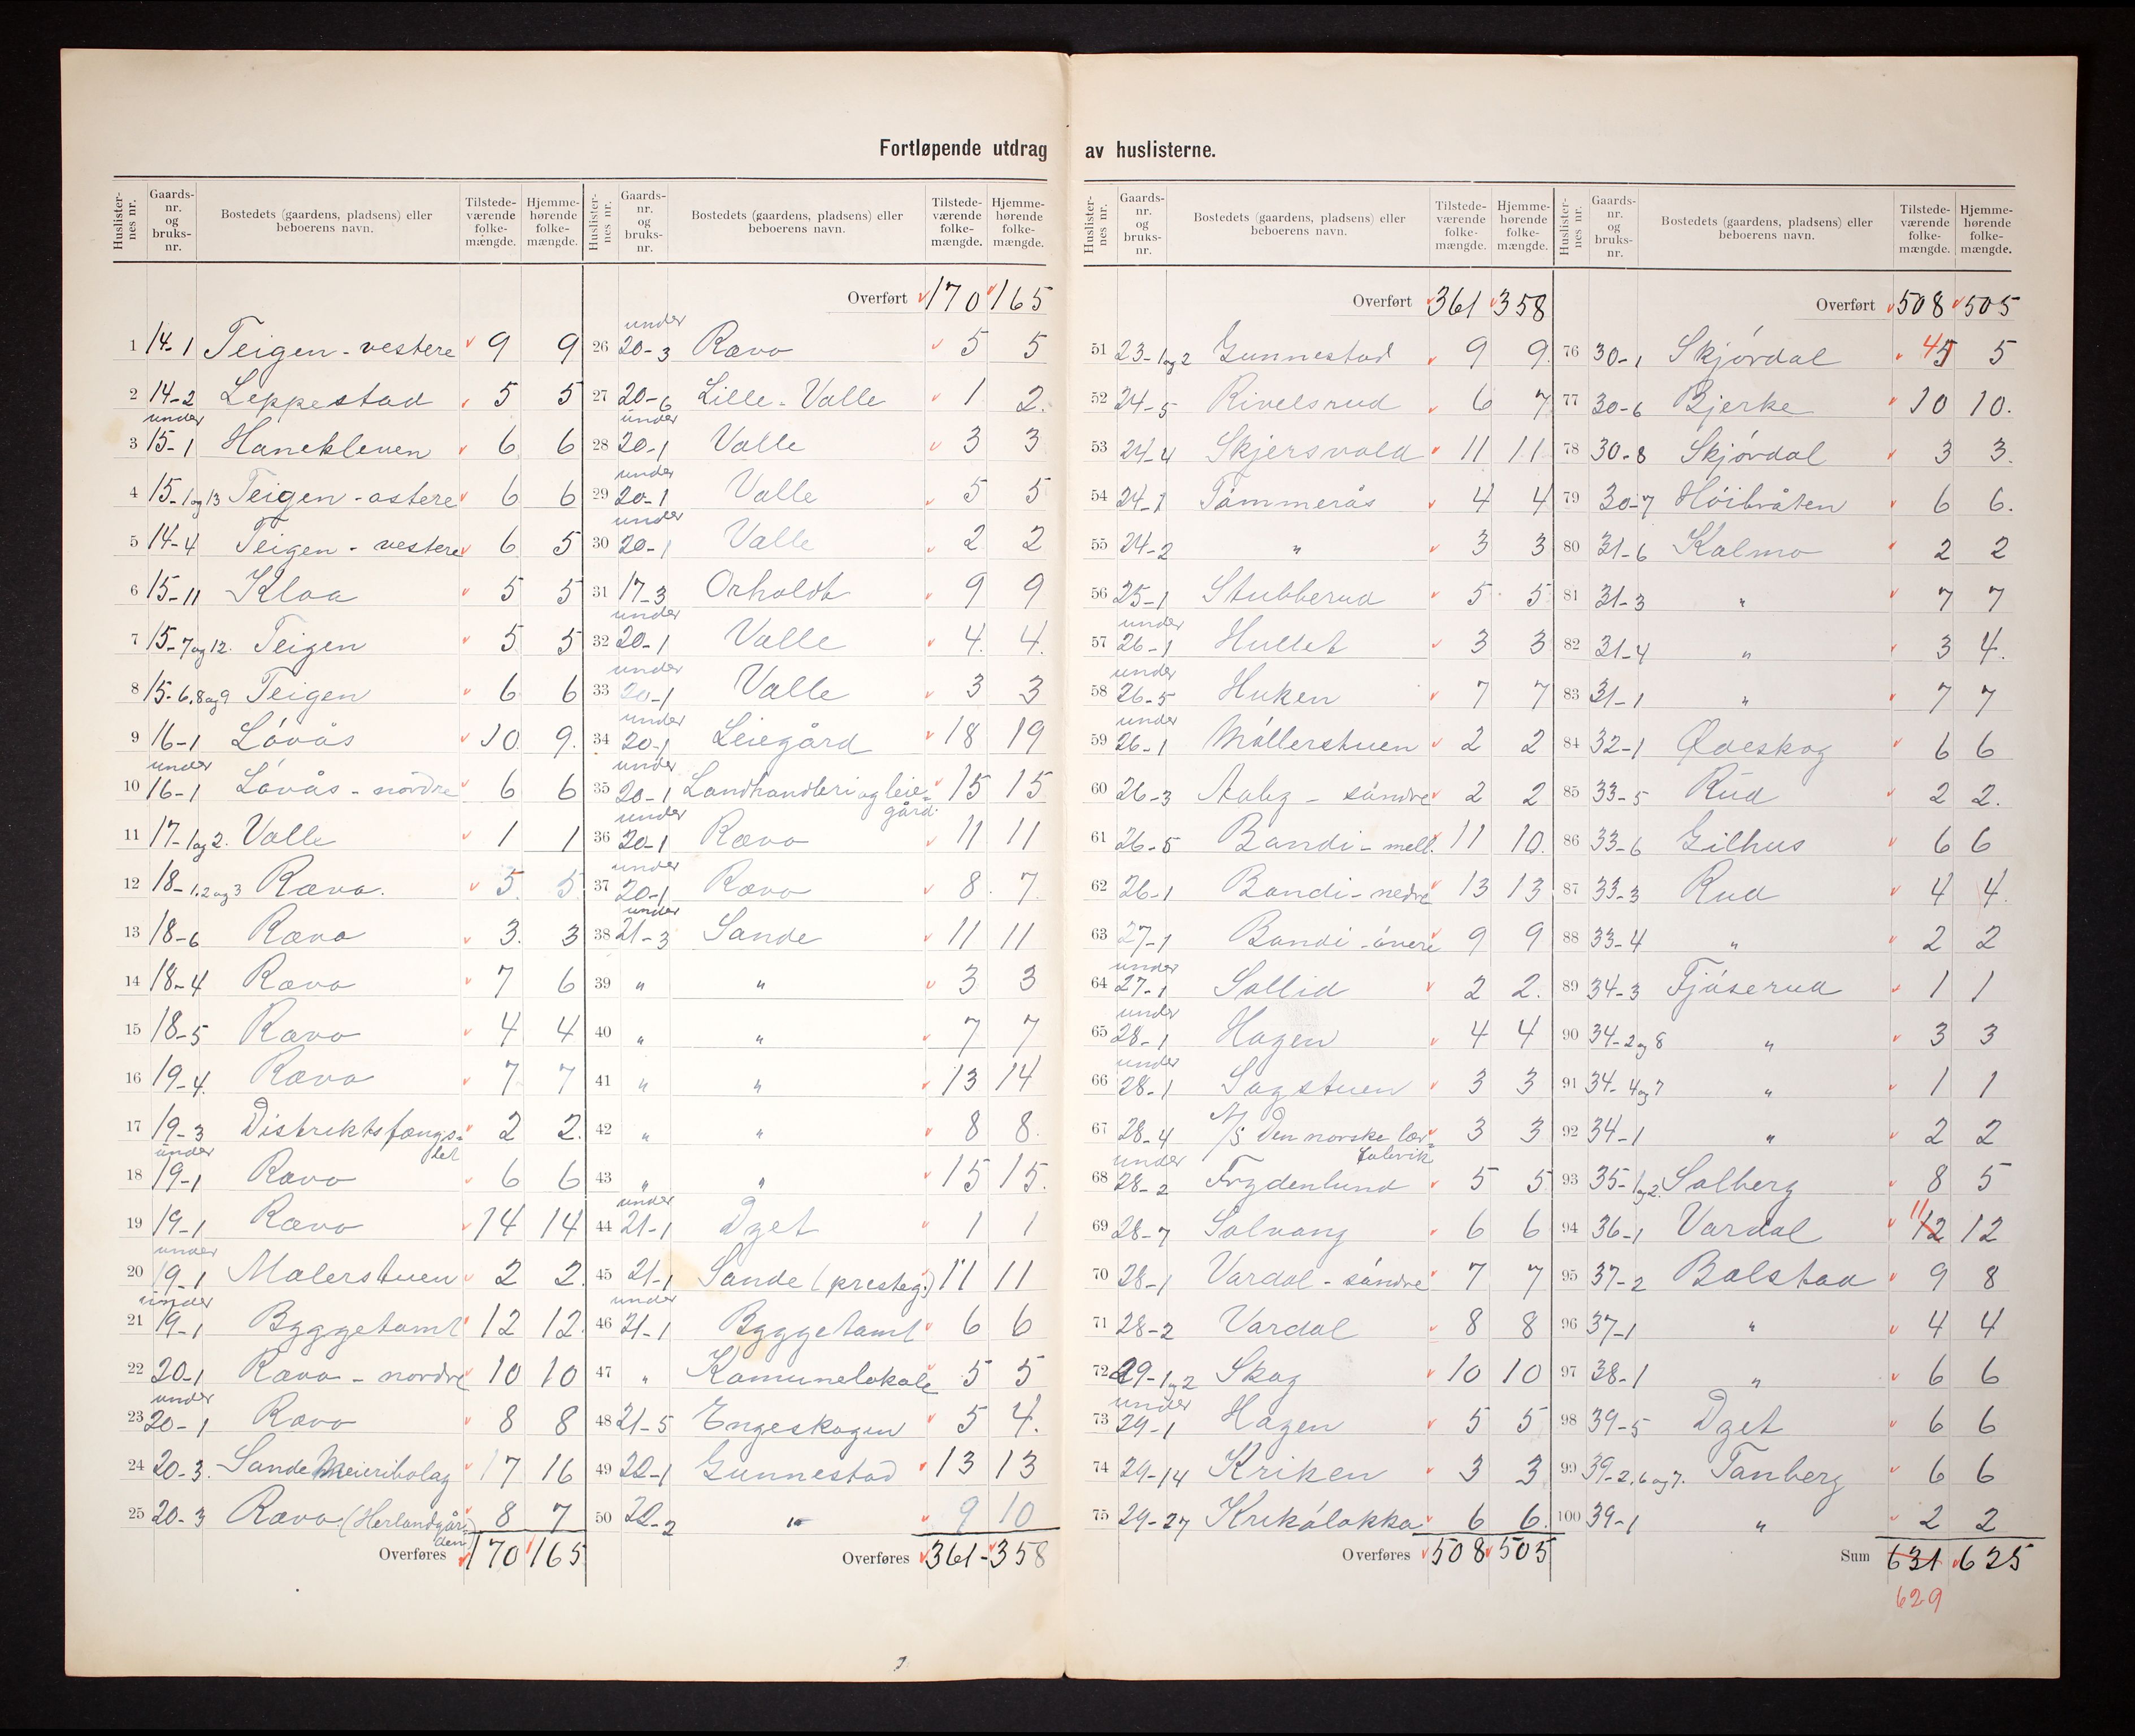 Fortløpende utdrag av huslisterne.
Huslisternes nr. Gaardsnr. og bruksnr. Bostedets (gaardens, pladsens) eller beboerens navn. Tilstedeværende folkemængde. Hjemmehørende folkemængde.
1 14-1 Teigen - vestere 9 9
2 14-2 Leppestad 5 5
3 under 15-1 Hanekleven 6 6
4 15-1og13 Teigen - østere 6 6
5 14-4 Teigen - vestere 6 5
6 15-11 Kloa 5 5
7 15-7og12. Teigen 5 5
8 15-6,8og9 Teigen 6 6
9 16-1 Løvås 10 9.
10 under 16-1 Løvås - nordre 6 6
11 17-1og2. Valle 1 1
12 18-1.2og3 Ravo. 5. 5.
13 18-6 Rævo 3. 3
14 18-4 Rævo 7 6
15 18-5 Rævo 4 4
16 19-4. Rævo 7 7
17 19-3 Distriktsfængslet 2 2.
18 under 19-1 Rævo 6 6
19 19-1 Rævo 14 14
20 under 19-1 Malerstuen 2 2
21 under 19-1 Byggetomt 12 12.
22 20-1 Rævo - nordre 10 10
23 under 20-1 Rævo 8 8
24 20-3. Sande Meieribolag 17 16
25 20-3 Rævo (Herlandgården) 8 7
Overføres 170 165
Huslisternes nr. Gaardsnr. og bruksnr. Bostedets (gaardens, pladsens) eller beboerens navn. Tilstedeværende folkemængde. Hjemmehørende folkemængde.
Overført 170 165
26 under 20-3 Rævo 5 5
27 20-6 Lille - Valle 1 2.
28 under 20-1 Valle 3 3
29 under 20-1 Valle 5 5
30 under 20-1 Valle 2 2
31 17-3 Orholdt 9 9
32 under 20-1 Valle 4. 4.
33 under 20-1 Valle 3 3
34 under 20-1 Leiegård 18 19
35 under 20-1 Landhandleri og leiegård. 15 15
36 under 20-1 Rævo 11 11
37 under 20-1 Rævo 8. 7.
38 under 21-3 Sande 11 11
39 " " 3 3
40 " " 7 7
41 " " 13 14
42 " " 8 8.
43 " " 15 15.
44 under 21-1 Dyet 1 1
45 21-1 Sande (presteg.) 11 11
46 under 21-1 Byggetomt 6 6
47 " Komunelokale 5 5
48 21-5 Engeskogen 5 4.
49 22-1 Gunnestad 13 13
50 22-2 " 9 10
Overføres 361 - 358
Huslisternes nr. Gaardsnr. og bruksnr. Bostedets (gaardens, pladsens) eller beboerens navn. Tilstedeværende folkemængde. Hjemmehørende folkemængde.
Overført 361 358
51 23-1og2 Gunnestad 9 9.
52 24-5 Rivelsrud 6 7
53 24-4 Skjersvold 11 11
54 24-1 Tømmerås 4 4
55 24-2 " 3 3
56 25-1 Stubberud 5 5
57 under 26-1 Hullet 3 3
58 under 26-5 Huken 7 7
59 under 26-1 Møllerstuen 2 2
60 26-3 Aaby - søndre 2 2
61 26-5 Bondi - mell. 11 10.
62 26-1 Bondi - nedre 13 13
63 27-1 Bondi - øvere 9 9
64 under 27-1 Sollid 2 2.
65 under 28-1 Hagen 4 4
66 under 28-1 Sagstuen 3 3
67 28-4 A/S Den norske lærfabrik 3 3
68 under 28-2 Frydenlund 5 5
69 28-7 Solvang 6 6
70 28-1 Vardal - søndre 7 7
71 28-2 Vardal 8 8
72 29-1og2 Skog 10 10
73 under 29-1 Hagen 5 5
74 29-14 Kriken 3 3
75 29-27 Krikøløkka 6 6.
Overføres 508 505
Huslisternes nr. Gaardsnr. og bruksnr. Bostedets (gaardens, pladsens) eller beboerens navn. Tilstedeværende folkemængde. Hjemmehørende folkemængde.
Overført 508 505
76 30-1 Skjørdal 4 5 5
77 30-6 Bjerke 10 10.
78 30-8 Skjørdal 3 3.
79 30-7 Høibråten 6 6.
80 31-6 Kolmo 2 2
81 31-3 " 7 7
82 31-4 " 3 4.
83 31-1 " 7 7
84 32-1 Ødeskog 6 6
85 33-5 Rud 2 2.
86 33-6 Gilhus 6 6
87 33-3 Rud 4 4.
88 33-4 " 2 2
89 34-3 Fjøserud 1 1
90 34-2og8 " 3 3
91 34-4og7 " 1 1
92 34-1 " 2 2
93 35-1og2. Solberg 8 5
94 36-1 Vardal 11 12 12
95 37-2 Bolstad 9 8
96 37-1 " 4 4
97 38-1 " 6 6
98 39-5 Dyet 6 6
99 39-2.6og7. Tanberg 6 6
100 39-1 " 2 2
Sum 631 625
629